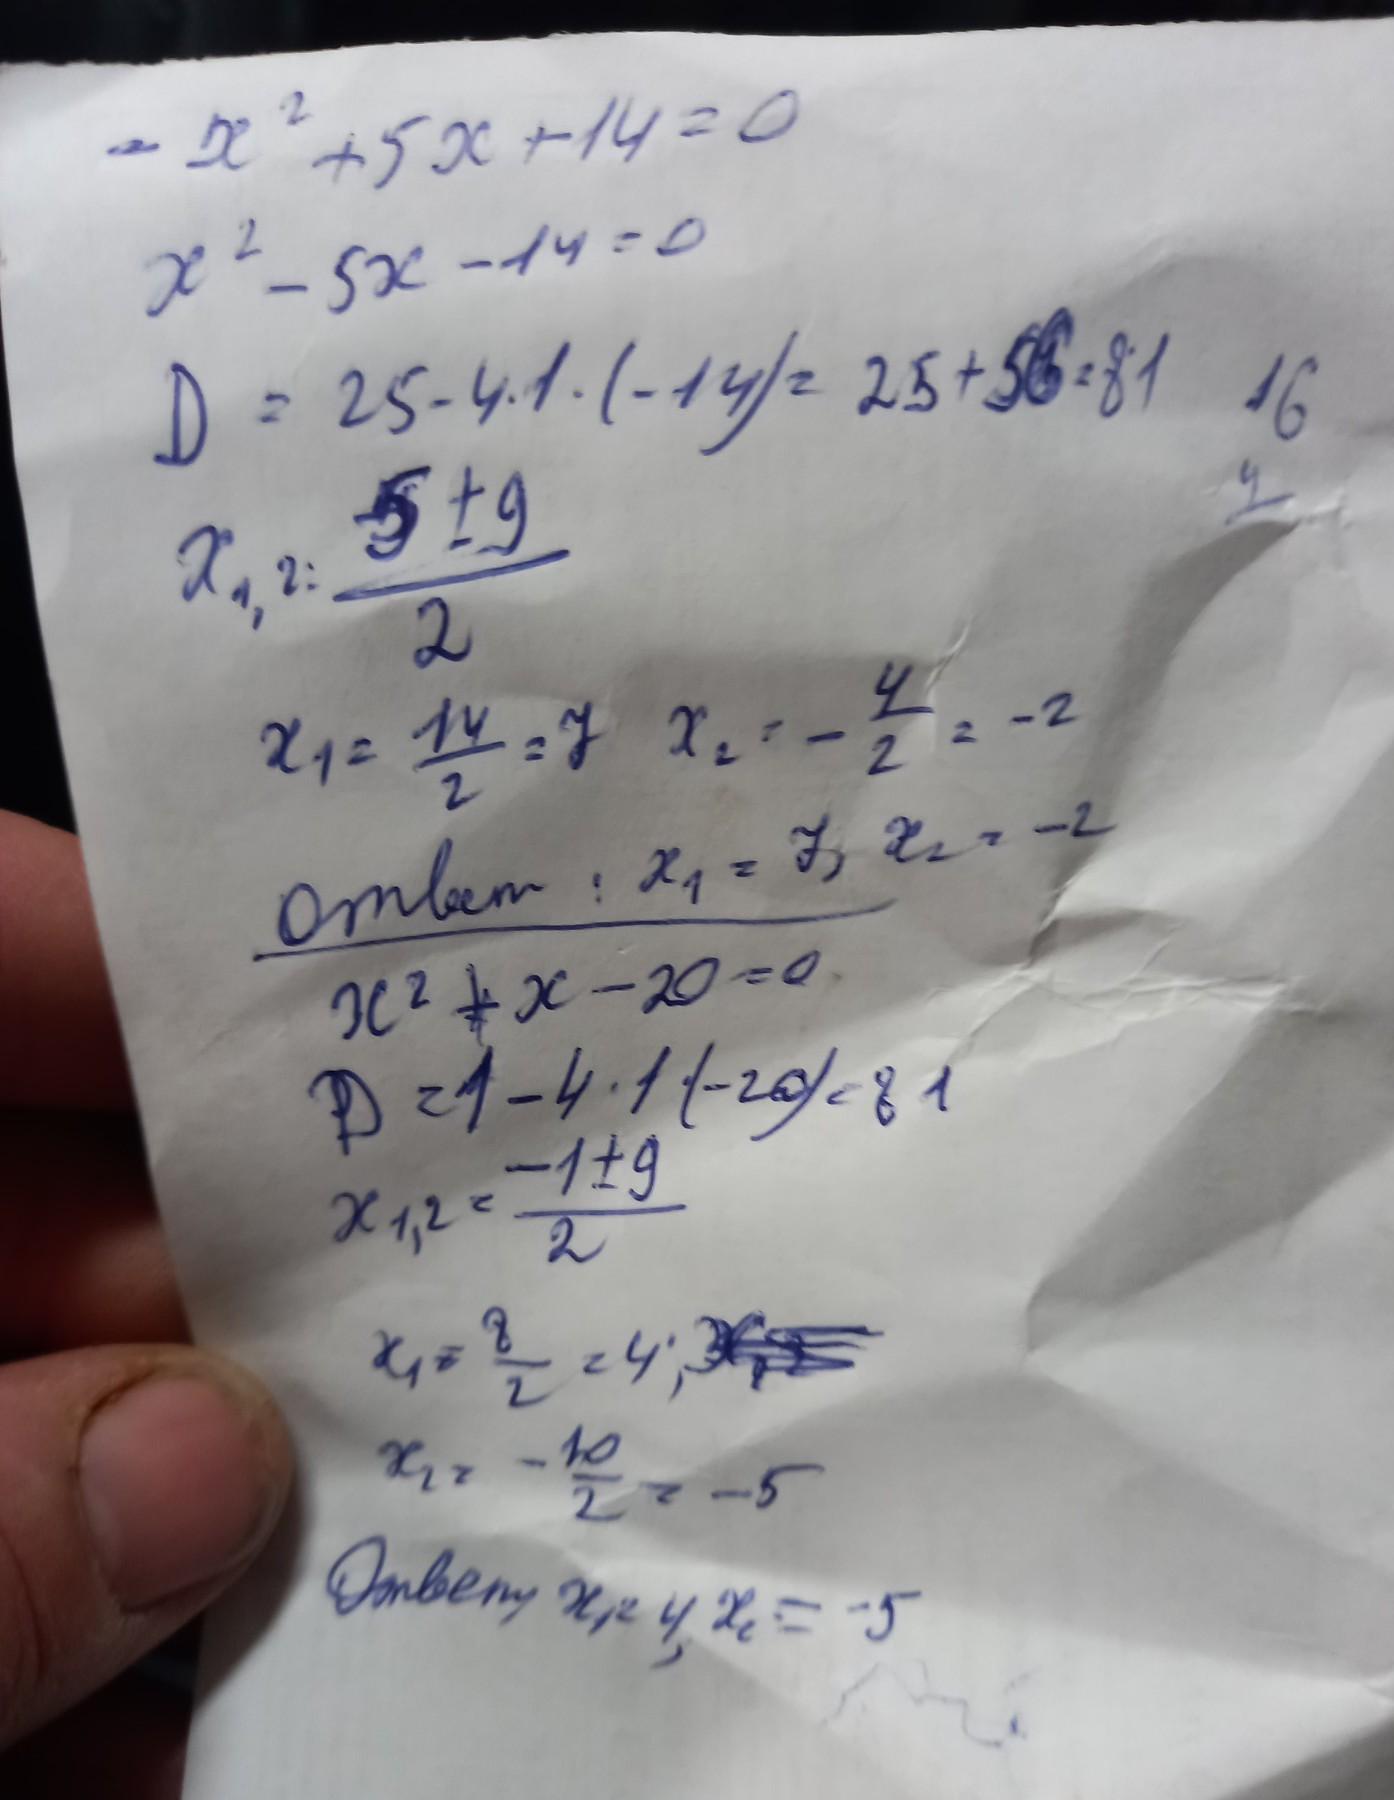 - x² + 5x + 14 = 0
x² - 5x - 14 = 0
D = 25 - 4·1·(-14) = 25 + 56 = 81 16
4
x₁,₂ = (5 ± 9)/2
x₁ = 14/2 = 7 x₂ = - 4/2 = -2
Ответ: x₁ = 7, x₂ = -2
x² + x - 20 = 0
D = 1 - 4·1(-20) = 81
x₁,₂ = (-1 ± 9)/2
x₁ = 8/2 = 4;
x₂ = - 10/2 = -5
Ответ, x₁ = 4, x₂ = -5